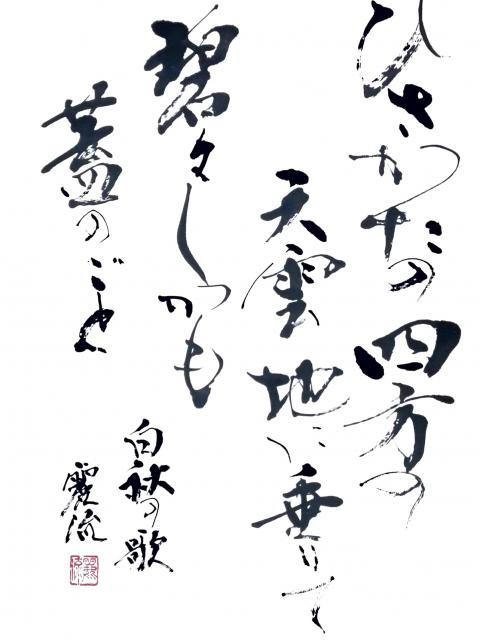 ひさかたの四方の
天雲地に垂りて
碧々しかも
蓋のごと
白秋の歌